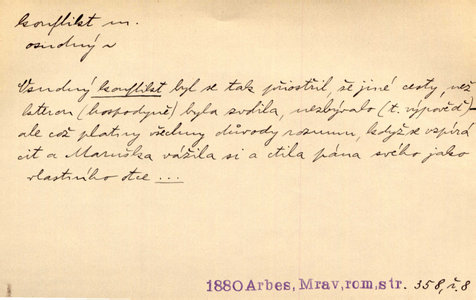 konflikt m.
osudný ~
Osudný konflikt byl se tak přiostřil, že jiné cesty, než
kterou (hospodyně) byla svolila, nezbývalo (t. výpověď) –
ale což platny všechny důvody rozumu, když se vzpírá
cit a Maruška vážila si a ctila pána svého jako
vlastního otce ...
1880 Arbes, Mrav, rom, str. 358, ř. 8